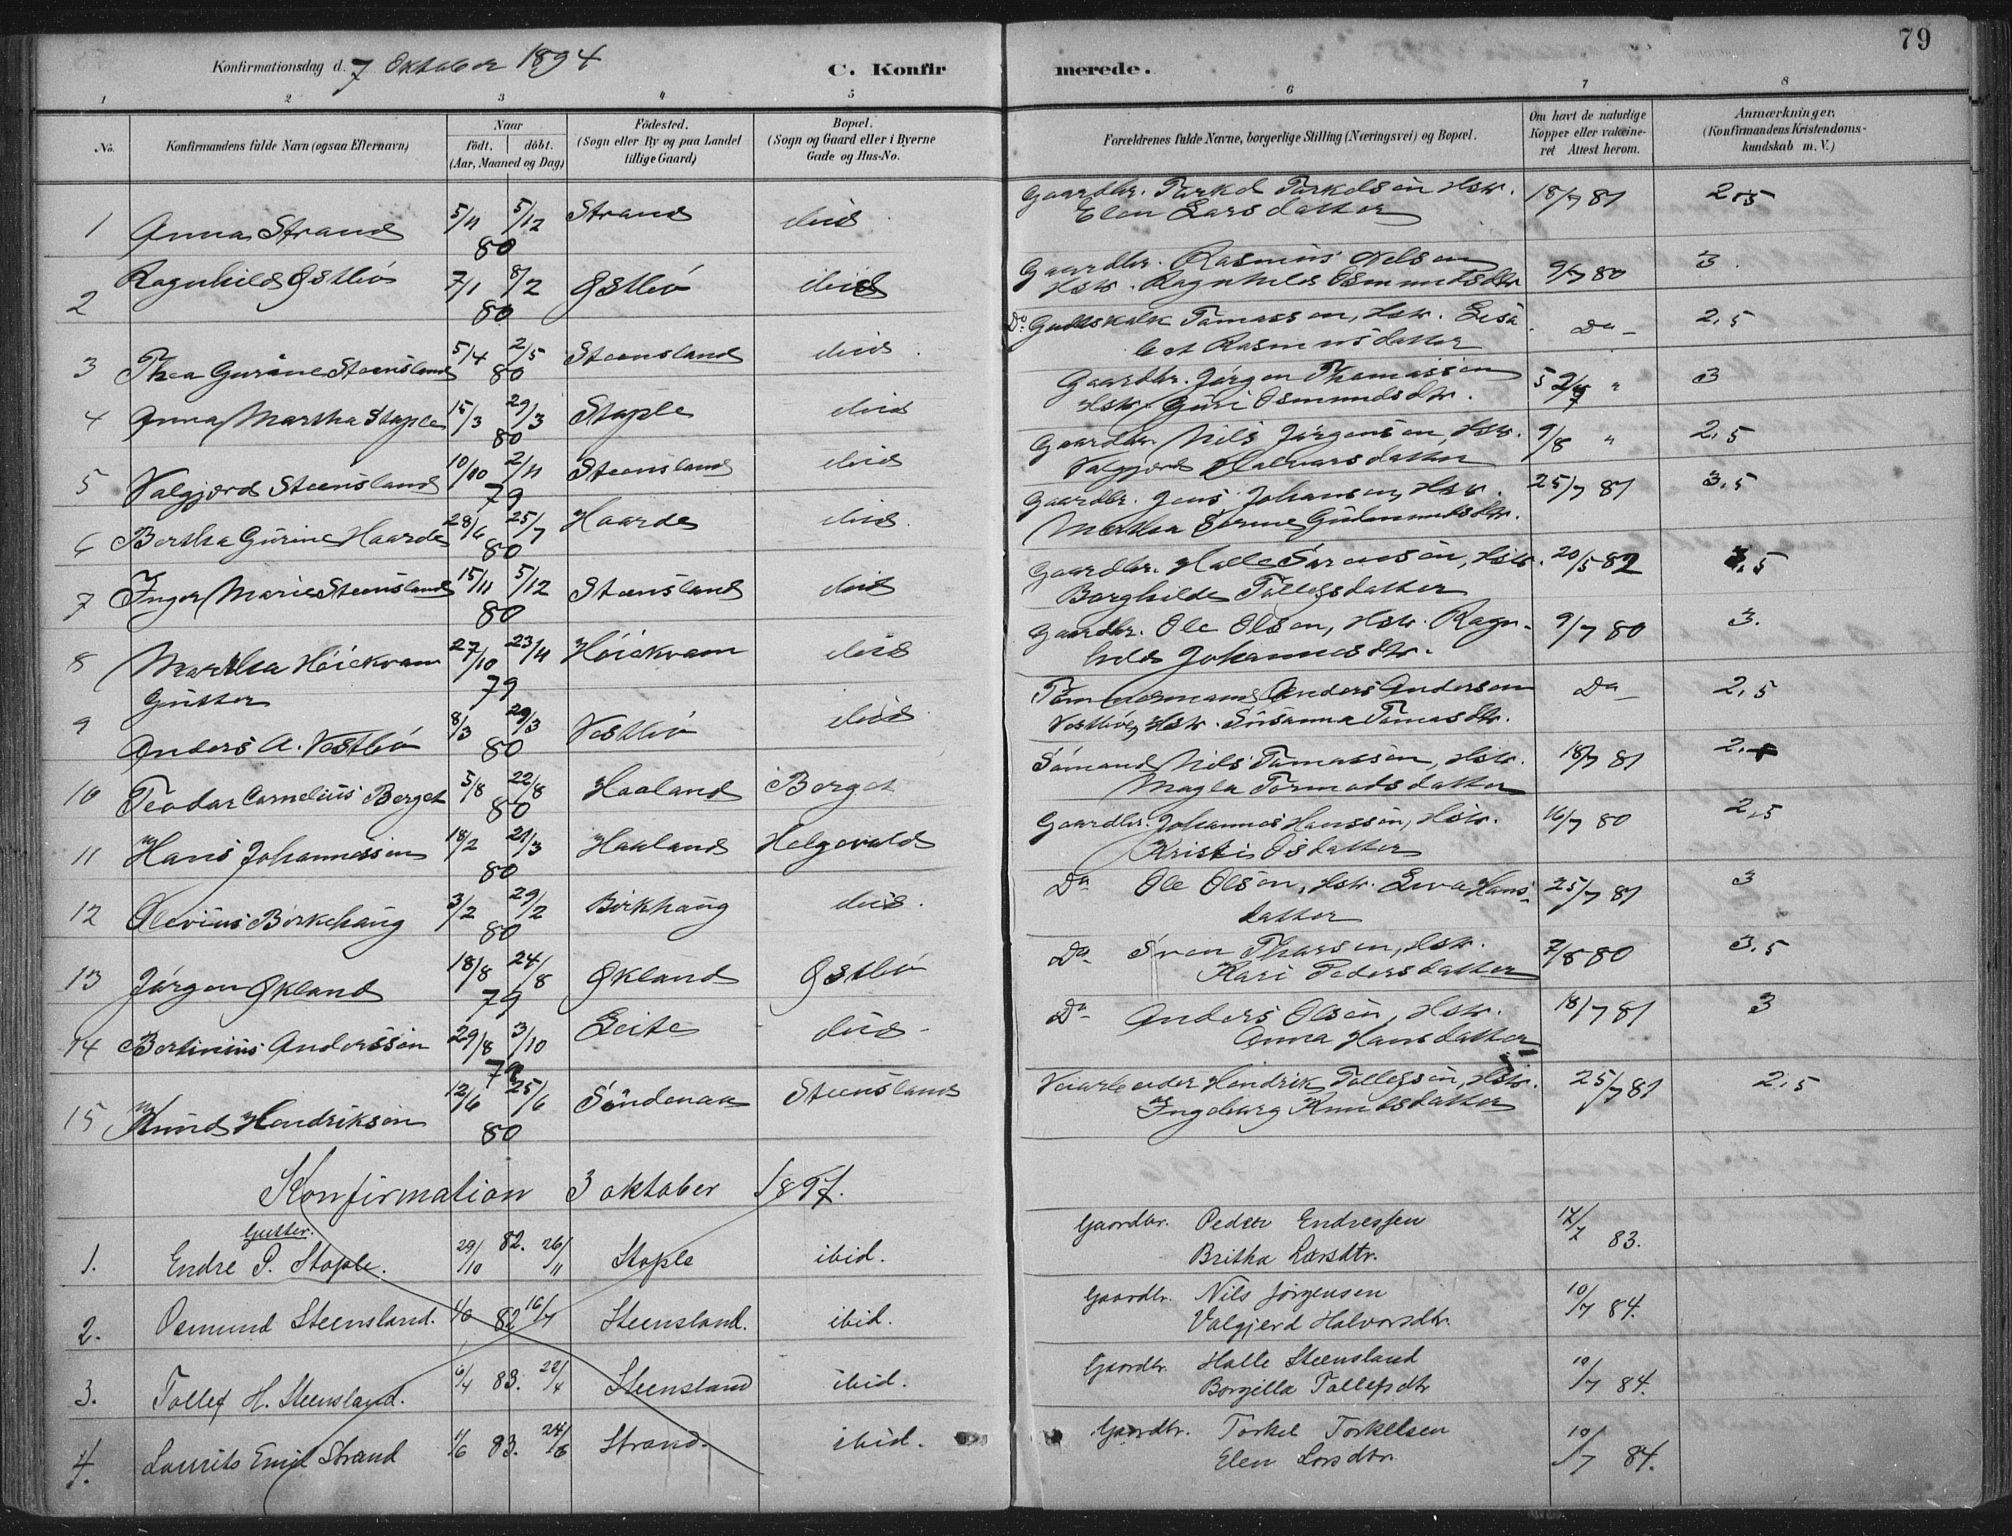 79
Konfirmationsdag d. 7 Oktober 1894
C. Konfirmerede.
1 2 3 4 5 6 7 8
No.
Konfirmandens fulde Navn (ogsaa Efternavn)
Naar
födt. döbt.
(Aar, Maaned og Dag)
Födested.
(Sogn eller By og paa Landet
tillige Gaard)
Bopæl.
(Sogn og Gaard eller i Byerne
Gade og Hus-No.
Forældrenes fulde Navne, borgerlige Stilling (Næringsvei) og Bopæl.
Om havt de naturlige
Kopper eller vakcine-
ret Attest herom.
Anmærkninger.
(Konfirmandens Kristendoms-
kundskab m. V.)
1 Anna Strand 5/11 5/12 80 Strand ibid Gaardbr. Torkel Torkelsen Hstr. 18/7 81 2,5
Elen Larsdatter
2 Ragnhild Østbø 7/1 8/2 80 Østbø ibid Gaardbr. Rasmus Nelsen 9/7 80 3
Hstr. Ragnhild Osmundsdtr
3 Thea Gurine Steensland 5/4 2/5 80 Steensland ibid Do Gudtskalk Tomassen, Hstr. Lisa Do 2,5
bet Rasmusdatter
4 Anna Martha Staple 15/3 29/3 80 Staple ibid Gaardbr. Jörgen Thomassen " 3
Hstr. Guri Osmundsdtr.
5 Valgjerd Steensland 10/10 2/11 79 Steensland ibid Gaardbr. Nils Jörgensen, Hstr. 9/8 " 2,5
Valgjerd Halvorsdatter
6 Bertha Gurine Haarde 28/6 25/7 80 Haarde ibid Gaardbr. Jens Johansen, Hstr. 25/7 81 3,5
Martha Serine Gudmundsdtr.
7 Inger Marie Steensland 15/11 5/12 80 Steensland ibid Gaardbr. Halle Sörensen, Hstr. 20/5 82 ,5
Borghilde Tollefsdatter
8 Martha Höiekvam 27/10 23/11 79 Höiekvam ibid Gaardbr. Ole Olsen, Hstr. Ragn- 9/7 80 3.
hild Johannesdtr.
Gutter
9 Anders A. Vestbö 8/3 29/3 80 Vestbö ibid Tömmermand Anders Andersen Do 2,5
Vestbö, Hstr. Susanna Tomasdtr.
10 Teodor Cornelius Berget 5/8 22/8 80 Haaland Berget Sömand Nils Tomassen, Hstr. 18/7 81 2.
Magla Tormodsdatter
11 Hans Johannessen 18/2 21/3 80 Haaland Helgevold Gaardbr. Johannes Hanssen, Hstr. 16/7 80 2,5
Kristi Osdatter
12 Olevius Birkehaug 3/2 29/2 80 Birkhaug ibid. Do Ole Olsen, Hstr. Eva Hans- 25/7 81 3
datter
13 Jörgen Økland 18/8 24/8 79 Økland Østbö Do Sven Thorsen, Hstr. 7/8 80 3.5
Kari Pedersdatter
14 Bertinius Anderssen 29/8 3/10 79 Leite ibid Do Anders Olsen, Hstr. 18/7 81 3
Anna Hansdatter
15 Knud Hendriksen 12/6 25/6 80 Söndenaa Steensland Veiarbeider Hendrik Tollefsen, Hstr. 25/7 81 2,5
Ingeborg Knudsdatter
Konfirmation 3 oktober 1897.
Gutter.
1. Endre P. Stople. 29/10 82. 26/11 Stople ibid. Gaardbr. Peder Endressen 17/2 83.
Britha Larsdtr.
2. Osmund Steensland. 82 16/7 Steensland. ibid. Gaardbr. Nils Jörgensen 10/7 84.
Valgjerd Halvorsdtr.
3. Tollef H. Steensland. 83. 22/4 Steensland ibid. Gaardbr. Halle Steensland 10/7 84.
Borgilla Tollefsdtr
4. Laurits Emil Strand 83. 24/6 Strand. ibid. Gaardbr. Torkel Torkelsen 10/7 84.
Elen Larsdtr.